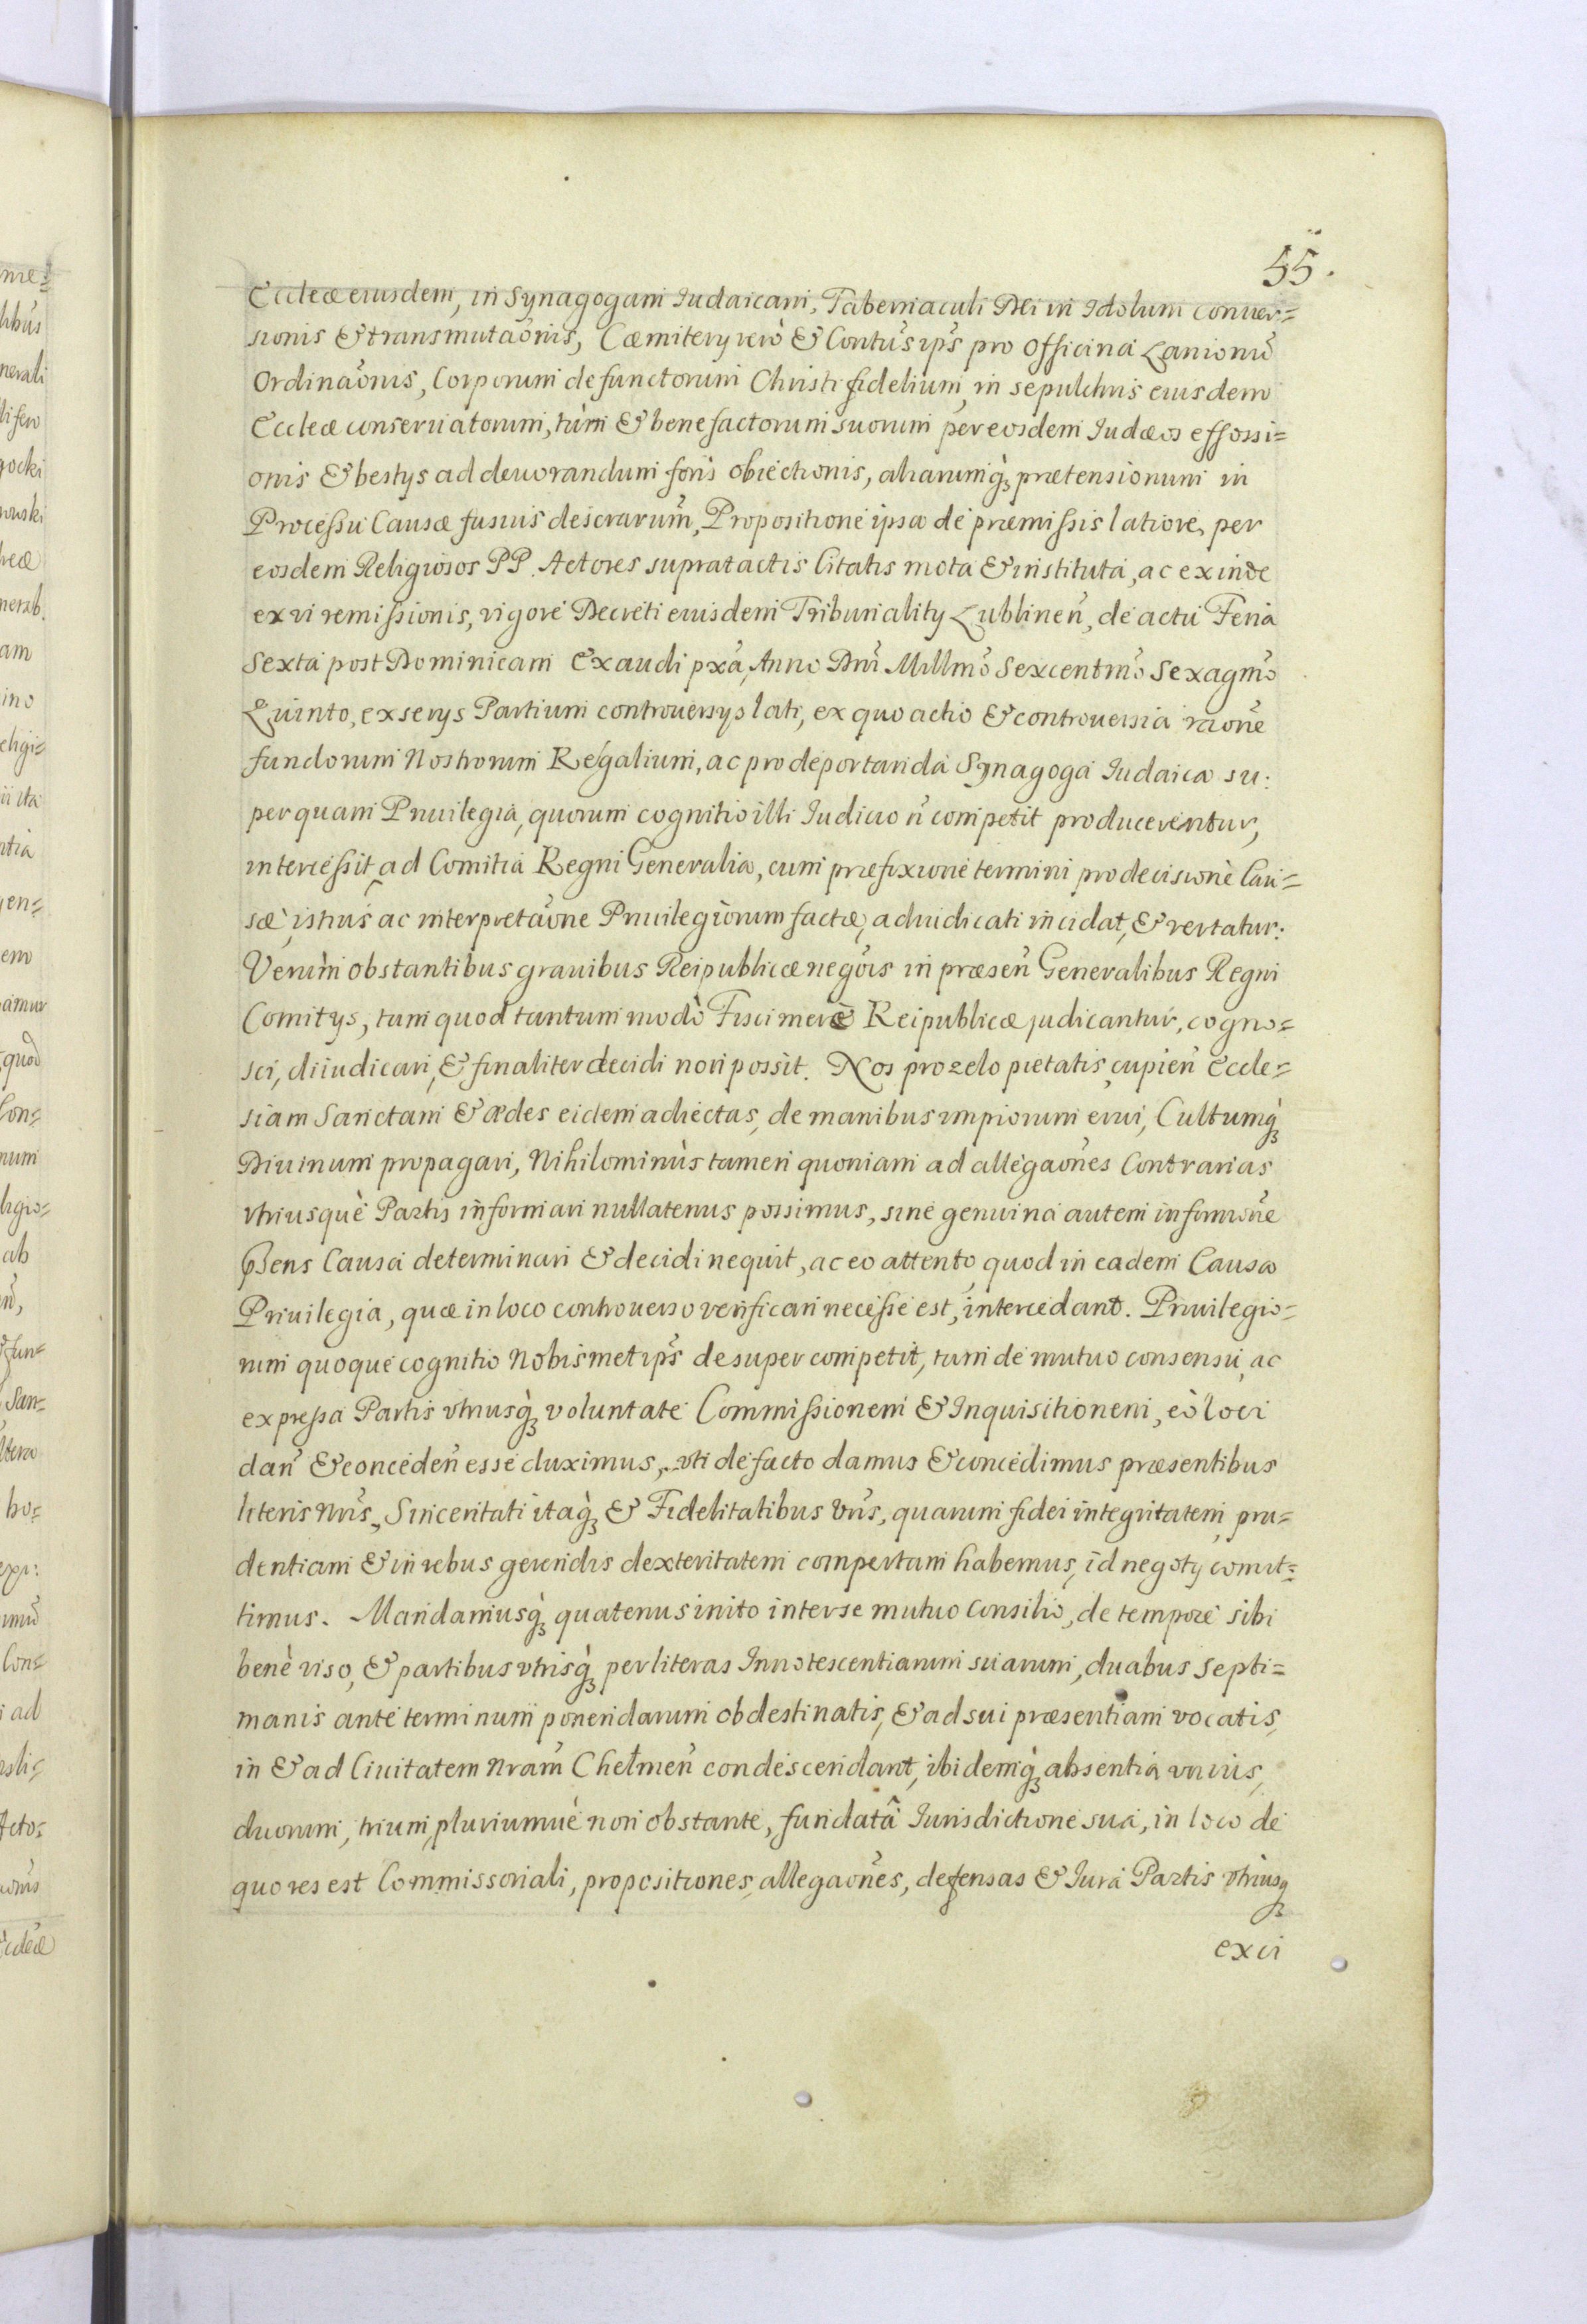 55.
Eccleæ eiusdem, in Synagogam Iudaicam, Tabernaculi Dei in Idolum conuer=
sionis & transmutaõnis, Cæmitery verò & Contũs ips̃ pro officina Lanionũ
Ordinaõnis, Corporum defunctorum Christi fidelium, in sepulchris eiusdem
Eccleæ conseruatorum, tùm & benefactorum suorum per eosdem Iudæos effossi=
onis & bestys ad deuorandum foris obiectionis, aliarumq̀ prætensionum in
Processu Causæ fusius descrarum̃, Propositione ipsa de præmissis latiore, per
eosdem Religiosos PP. Actores supratactis Citatis mota & instituta, ac exinde
ex vi remissionis, vigore Decreti eiusdem Tribunality Lublineñ, de actu Feria
Sexta post Dominicam Exaudi pxã, Anno Dni Millmõ Sexcentmõ Sexagmõ
Quinto, ex serys Partium controuersys lati, ex quo actio & controuersia raõne
fundorum Nostrorum Regalium, ac pro deportanda Synagoga Iudaica su:
per quam Priuilegia, quorum cognitio illi Iudicio ñ competit producerentur,
intercessit ad Comitia Regni Generalia, cum præfixione termini pro decisione Cau=
sæ istius ac interpretaõne Priuilegiorum factæ, adiudicati incidat, & vertatur:
Verùm obstantibus grauibus Reipublicæ negõis in præseñ Generalibus Regni
Comitys, tum quod tantum modò Fisci meræ Reipublicæ judicantur, cogno=
sci, diiudicari, & finaliter decidi non possit. Nos pro zelo pietatis cupieñ Eccle=
siam Sanctam & ædes eidem adiectas, de manibus impiorum erui, Cultumq̀
Diuinum propagari, Nihilominùs tamen quoniam ad allegaões Contrarias
vtriusquè Partis informari nullatenus possimus, sine genuina autem infomiõne
p̃sens Causa determinari & decidi nequit, ac eo attento quod in eadem Causa
Priuilegia, quæ in loco controuerso verificari necesse est, intercedant. Priuilegio=
rum quoque cognitio Nobismet ips̃ desuper competit, tum de mutuo consensu, ac
expressa Partis vtriusq̀ voluntate Commissionem & Inquisitionem, eò loci
dañ & concedeñ esse duximus, vti de facto damus & concedimus præsentibus
literis Nrĩs, Sinceritati itaq̀ & Fidelitatibus Vrĩs, quarum fidei integritatem, pru=
dentiam & in rebus gerendis dexteritatem compertam habemus, id negoty comit=
timus. Mandamusq̀ quatenus inito inter se mutuo consilio, de tempore sibi
benè viso, & partibus vtrisq̀ per literas Innotescentiarum suarum, duabus septi=
manis ante terminum ponendarum obdestinatis, & ad sui præsentiam vocatis,
in & ad Ciuitatem Nram̃ Chełmeñ condescendant, ibidemq̀ absentia vnius,
duorum, trium, pluriumuè non obstante, fundatâ Iurisdictione sua, in loco de
quo res est Commissoriali, propositiones, allegaões, defensas & Iura Partis vtriusq̀
exci